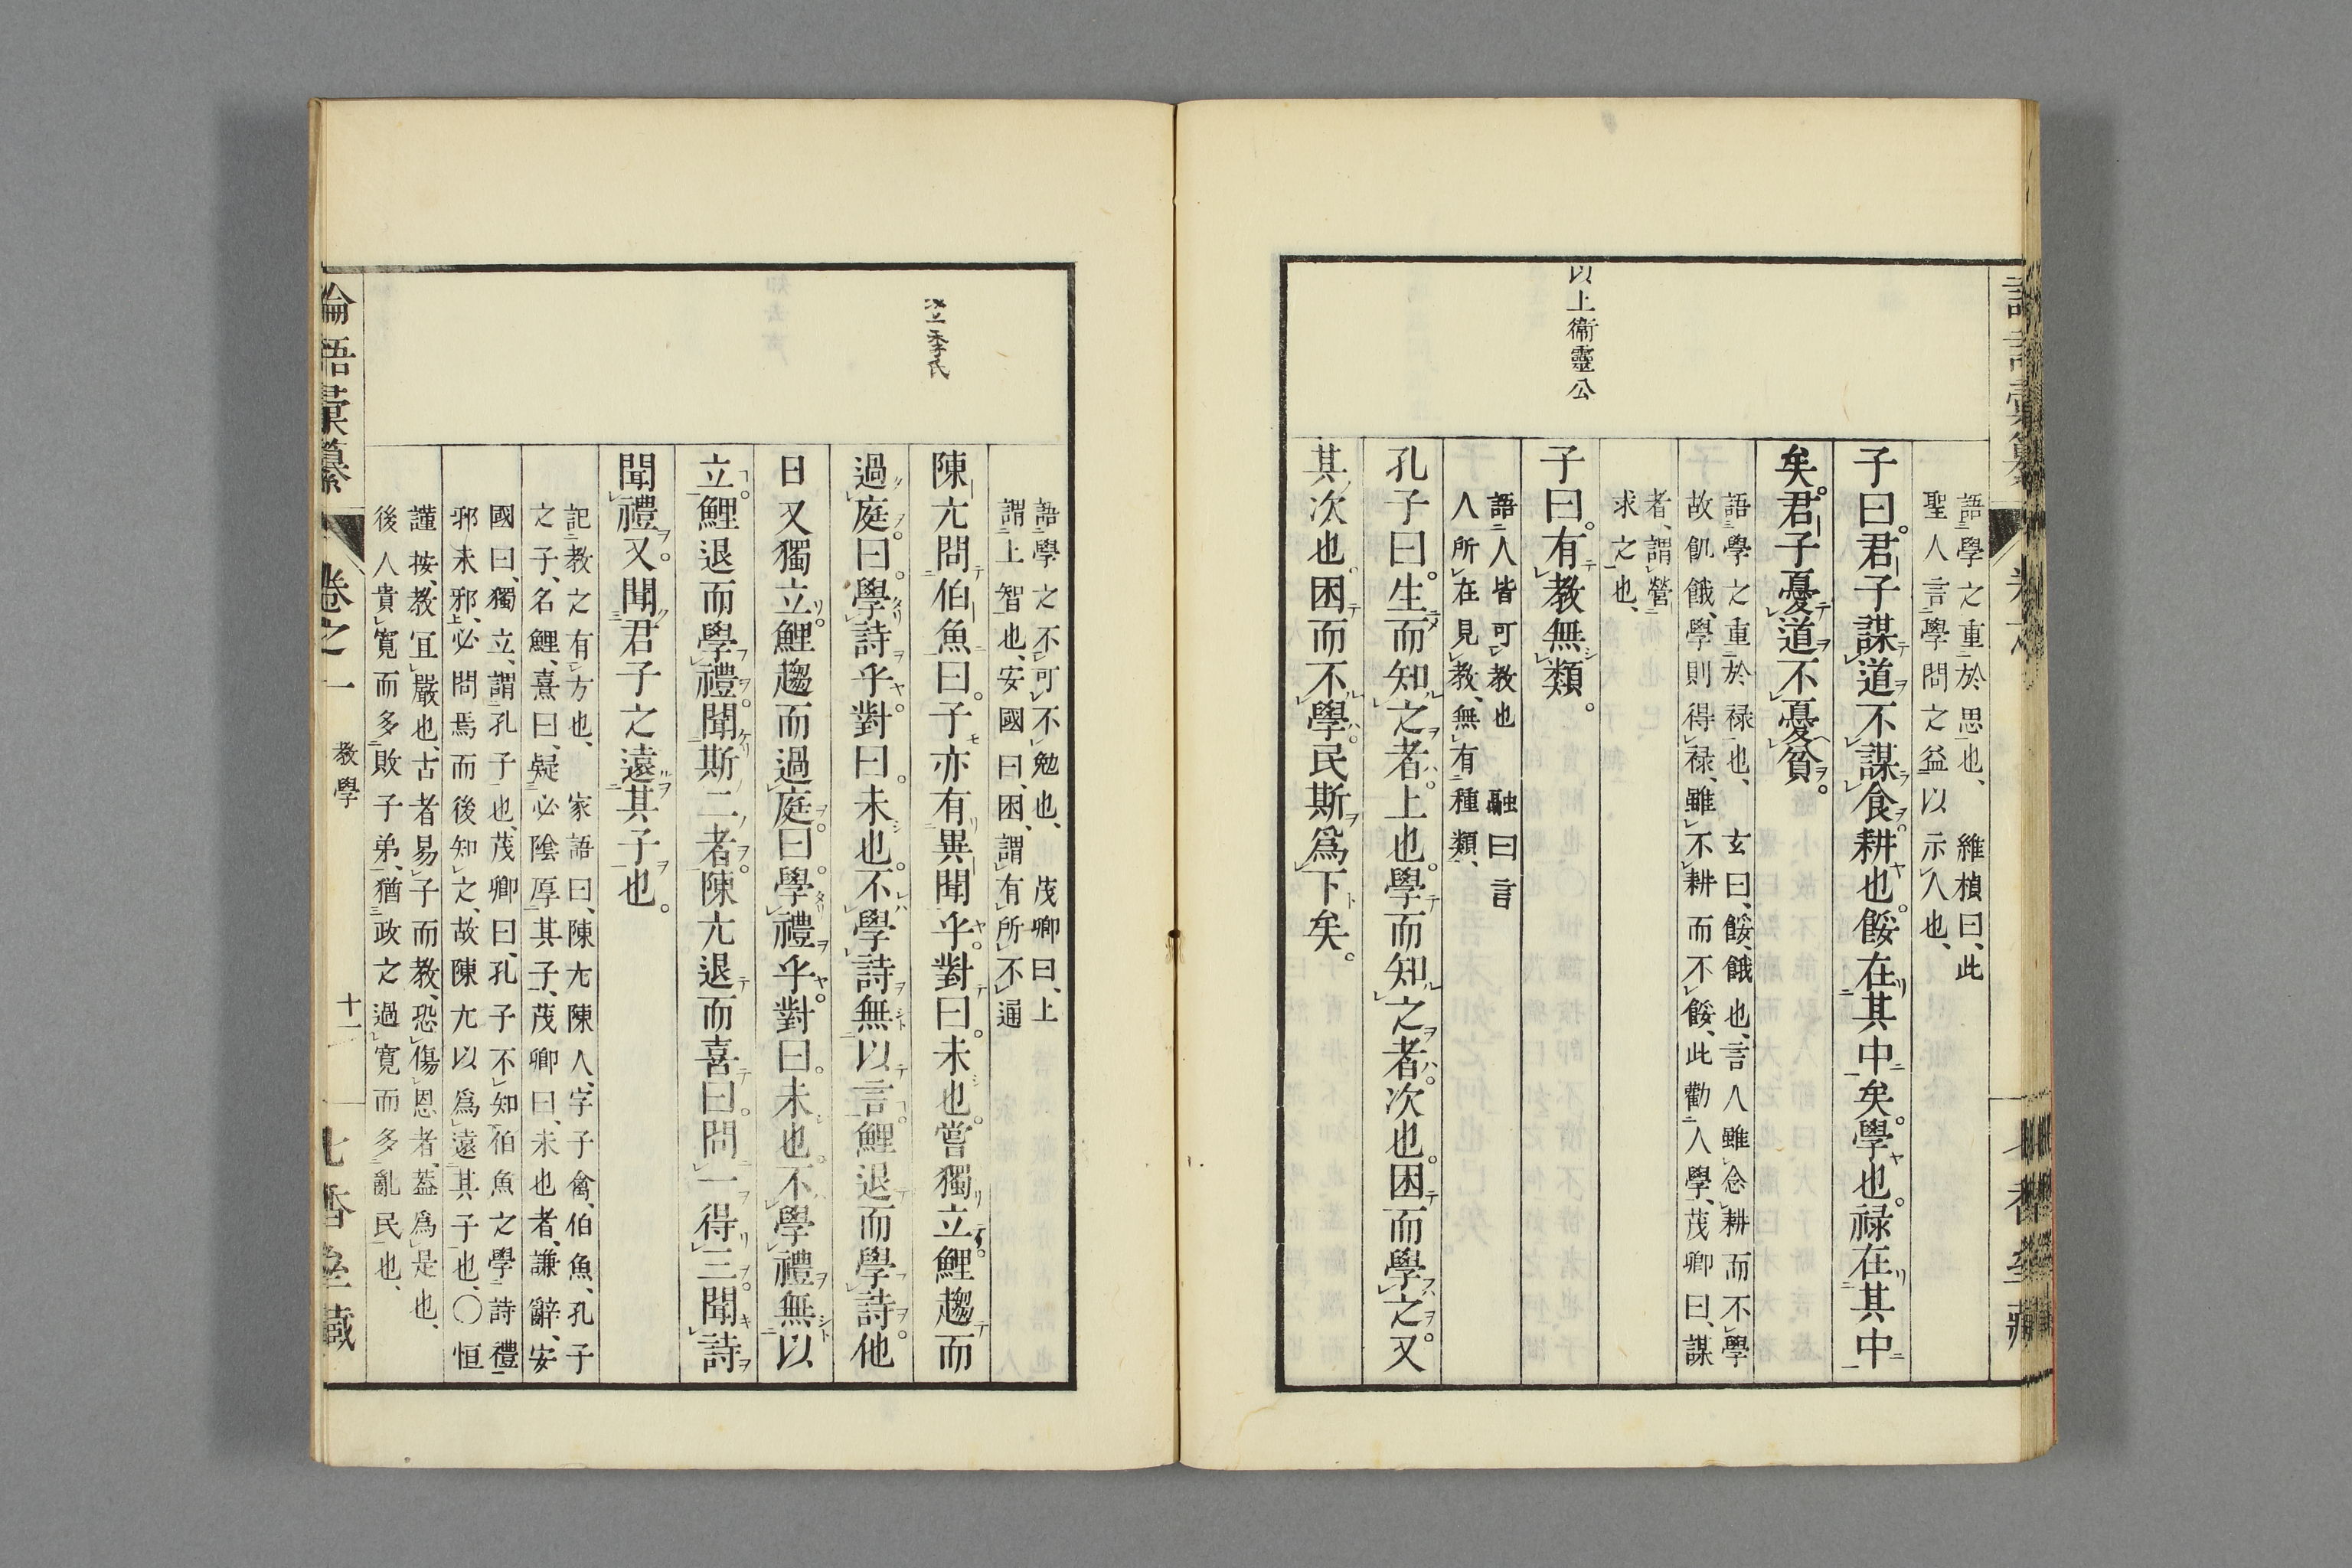 以上衞靈公
語學之重於思也、維楨曰、此
聖人言學問之益以示人也、
子曰。君子謀道不謀食。耕也。餒在其中矣。學也。祿在其中
矣。君子憂道不憂貧。
語學之重於祿也、玄曰、餒、餓也、言人雖念耕而不學
故飢餓、學則得祿、雖不耕而不餒、此勸人學、茂卿曰、謀
者、謂營
求之也、
子曰。有教無類。
語人皆可教也 融曰言
人所在見教、無有種類、
孔子曰。生而知之者。上也。學而知之者。次也。困而學之。又
其次也。困而不學。民斯爲下矣。
語學之不可不勉也、茂卿曰、上
謂上智也、安國曰、困、謂有所不通
季氏
陳亢問伯魚曰。子亦有異聞乎。對曰。未也。嘗獨立。鯉趨而
過庭。曰。學詩乎。對曰。未也。不學詩無以言。鯉退而學詩。他
日又獨立。鯉趨而過庭。曰。學禮乎。對曰。未也。不學禮無以
立。鯉退而學禮。聞斯二者。陳亢退而喜曰。問一得三。聞詩
聞禮。又聞君子之遠其子也。
記教之有方也、家語曰、陳亢陳人、字子禽、伯魚、孔子
之子、名鯉、熹曰、疑必陰厚其子、茂卿曰、未也者、謙辭、安
國曰、獨立、謂孔子也、茂卿曰、孔子不知伯魚之學詩禮
邪未邪、必問焉而後知之、故陳亢以爲遠其子也、〇恒
謹按、教宜嚴也、古者易子而教、恐傷恩者、蓋爲是也、
後人貴寬而多敗子弟、猶政之過寬而多亂民也、
論語彙纂 卷之一 教學 十一